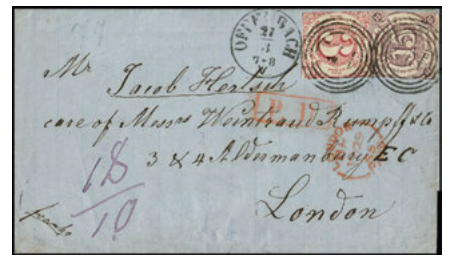 OFFENBACH
21
3
7-8
Mr Jacob Hertsch
care of Messrs Weintraud Rumpff & Co
3 & 4 Aldermanbury E C
London
P.D.
LONDON
18
10
franko
3